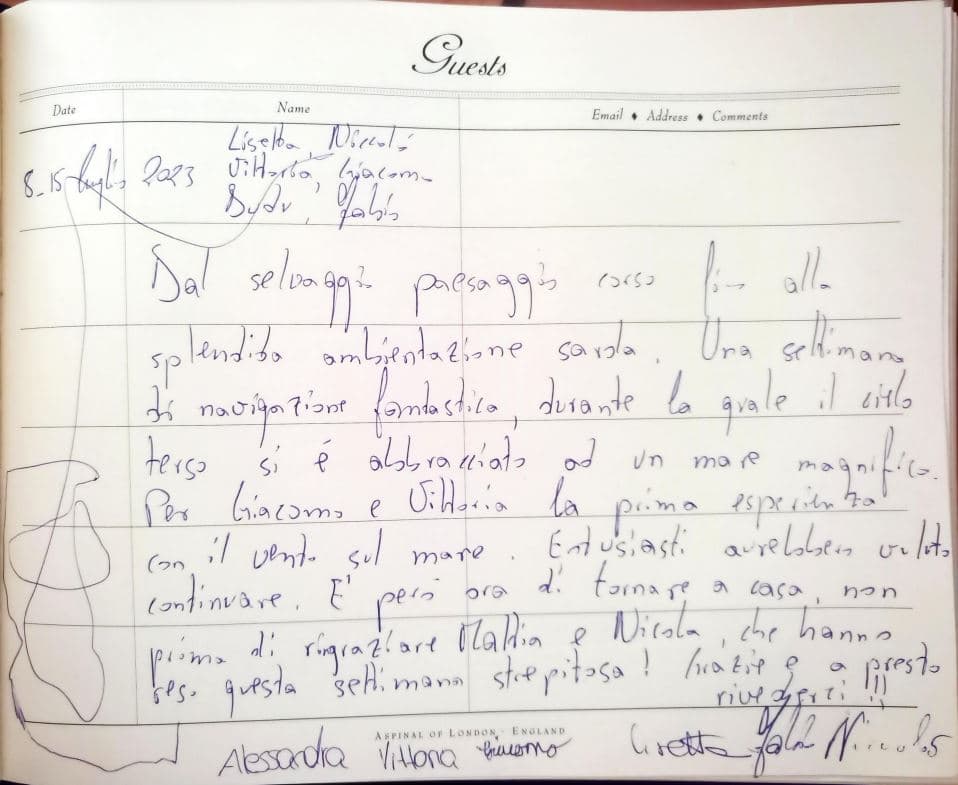 Guests
Date Name Email ♦ Address ♦ Comments
Lisetta, Niccolò
8-15 luglio 2023 Vittoria, Giacomo
Fabio
Dal selvaggio paesaggio corso fino alla
splendida ambientazione sarda. Una settimana
di navigazione fantastica, durante la quale il cielo
terso si è abbracciato ad un mare magnifico.
Per Giacomo e Vittoria la prima esperienza
con il vento sul mare. Entusiasti avrebbero voluto
continuare. E' però ora di tornare a casa, non
prima di ringraziare Mattia e Nicola, che hanno
reso questa settimana strepitosa! Grazie e a presto
rivederci!!!
ASPINAL OF LONDON · ENGLAND
Alessandra Vittoria Giacomo Lisetta Fabio